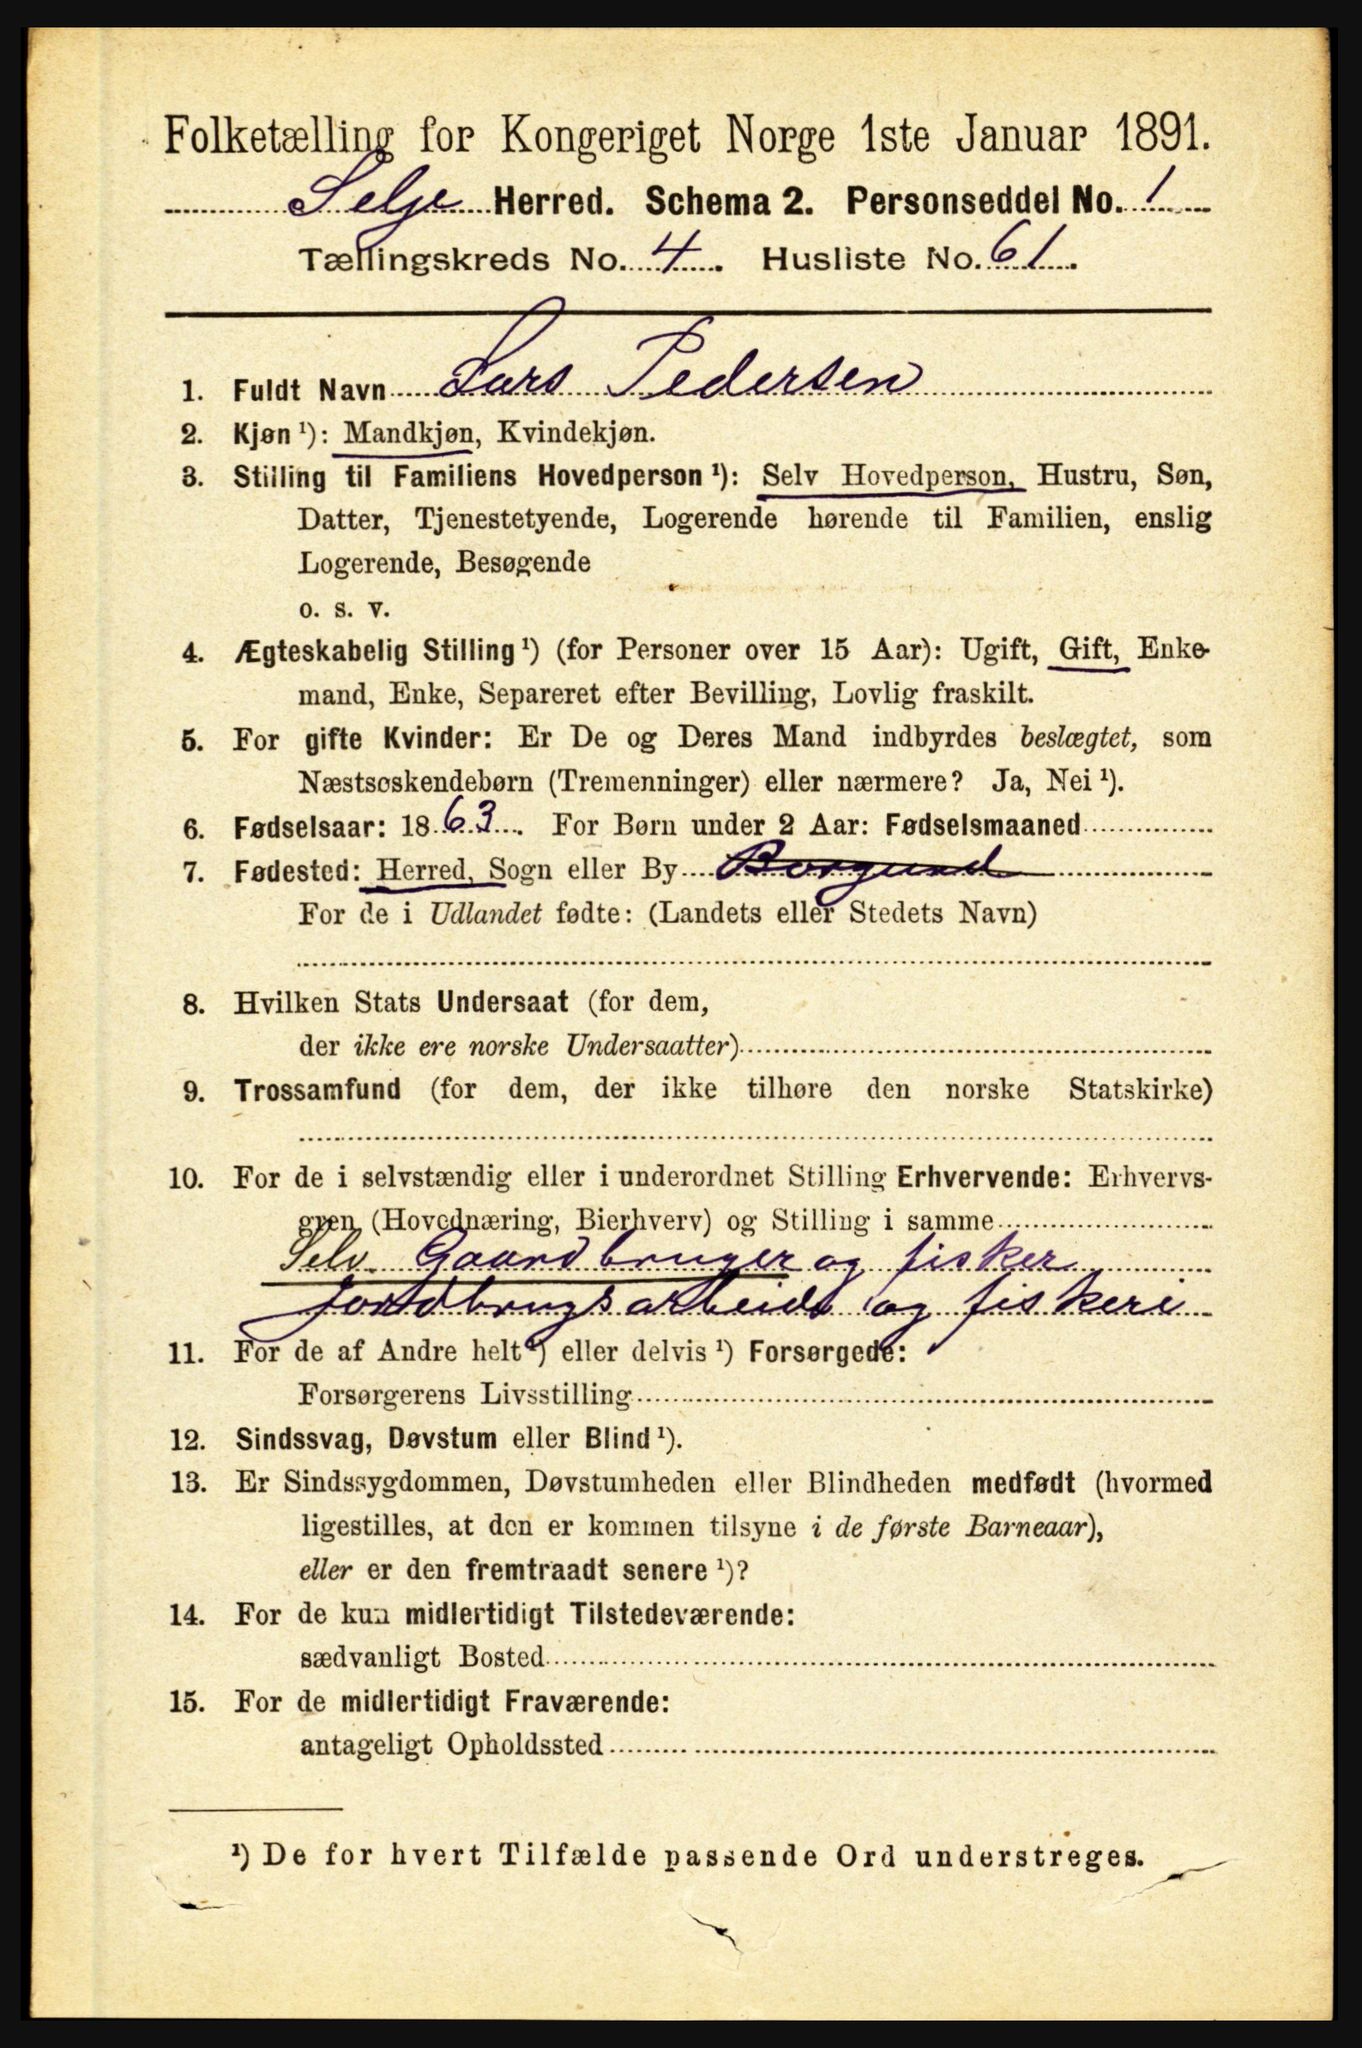 Folketælling for Kongeriget Norge 1ste Januar 1891.
Selje Herred. Schema 2. Personseddel No. 1
Tællingskreds No. 4. Husliste No. 61.
1. Fuldt Navn Lars Pedersen
2. Kjøn ¹): Mandkjøn, Kvindekjøn.
3. Stilling til Familiens Hovedperson ¹): Selv Hovedperson, Hustru, Søn,
Datter, Tjenestetyende, Logerende hørende til Familien, enslig
Logerende, Besøgende
o. s. v.
4. Ægteskabelig Stilling ¹) (for Personer over 15 Aar): Ugift, Gift, Enke-
mand, Enke, Separeret efter Bevilling, Lovlig fraskilt.
5. For gifte Kvinder: Er De og Deres Mand indbyrdes beslægtet, som
Næstsøskendebørn (Tremenninger) eller nærmere? Ja, Nei ¹).
6. Fødselsaar: 1863. For Børn under 2 Aar: Fødselsmaaned
7. Fødested: Herred, Sogn eller By Borgund
For de i Udlandet fødte: (Landets eller Stedets Navn)
8. Hvilken Stats Undersaat (for dem,
der ikke ere norske Undersaatter)
9. Trossamfund (for dem, der ikke tilhøre den norske Statskirke)
10. For de i selvstændig eller i underordnet Stilling Erhvervende: Erhvervs-
gren (Hovednæring, Bierhverv) og Stilling i samme
Selv. Gaardbruger og fisker
Jordbrugsarbeide og fiskeri
11. For de af Andre helt ¹) eller delvis ¹) Forsørgede:
Forsørgerens Livsstilling
12. Sindssvag, Døvstum eller Blind ¹).
13. Er Sindssygdommen, Døvstumheden eller Blindheden medfødt (hvormed
ligestilles, at den er kommen tilsyne i de første Barneaar),
eller er den fremtraadt senere ¹)?
14. For de kun midlertidigt Tilstedeværende:
sædvanligt Bosted
15. For de midlertidigt Fraværende:
antageligt Opholdssted
¹) De for hvert Tilfælde passende Ord understreges.